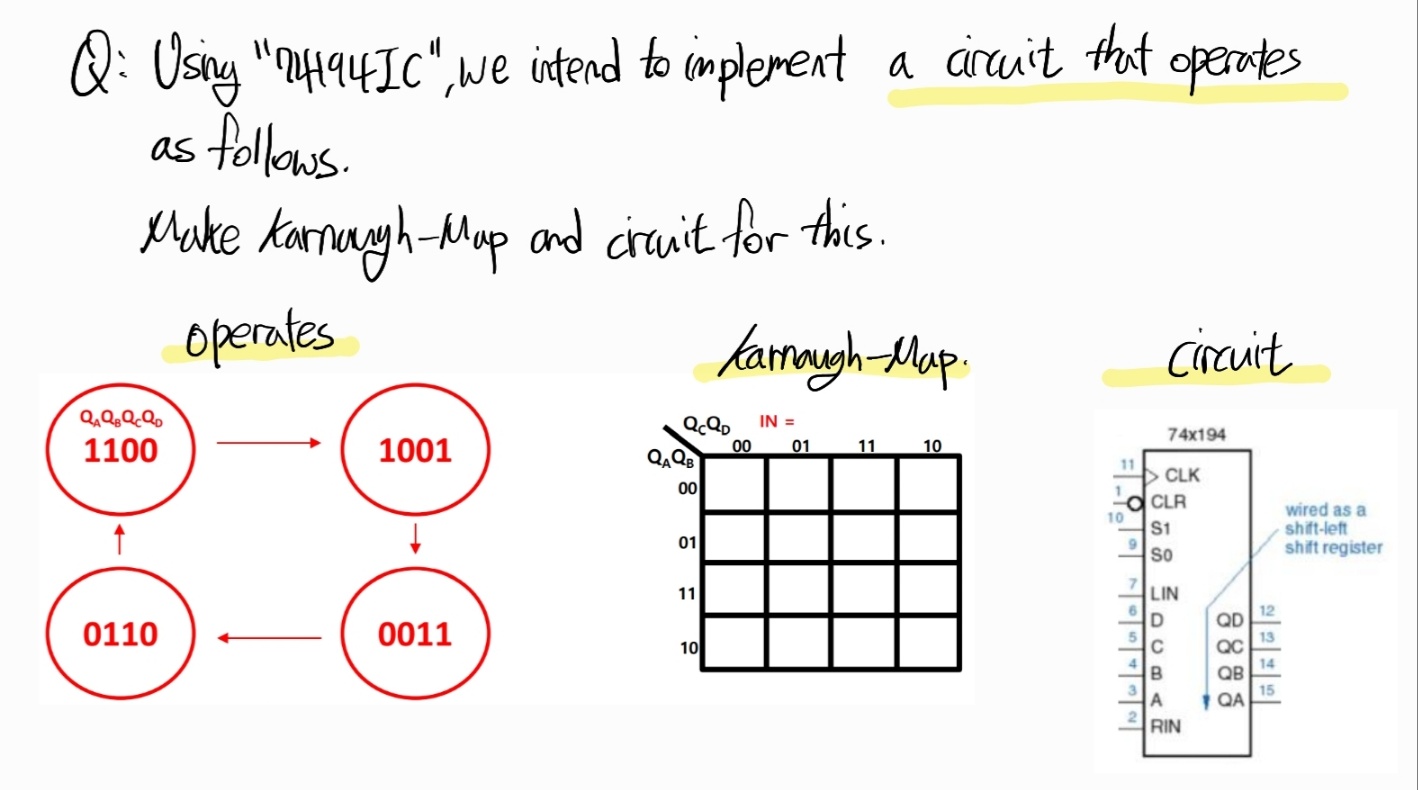 Q: Using "74194IC", we intend to implement a circuit that operates
as follows.
Make Karnaugh-Map and circuit for this.
operates
Karnaugh-Map.
circuit
QAQBQCQD
1100
1001
0110
0011
QCQD IN =
QAQB
00 01 11 10
00
01
11
10
74x194
11 CLK
1 CLR
10 S1
9 S0
7 LIN
6 D QD 12
5 C QC 13
4 B QB 14
3 A QA 15
2 RIN
wired as a
shift-left
shift register